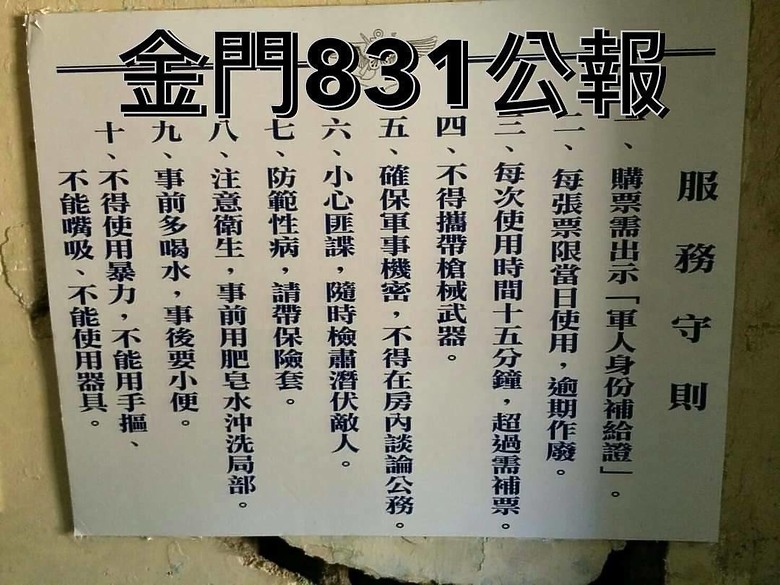 金門831公報
服務守則
一、購票需出示「軍人身份補給證」。
二、每張票限當日使用，逾期作廢。
三、每次使用時間十五分鐘，超過需補票。
四、不得攜帶槍械武器。
五、確保軍事機密，不得在房內談論公務。
六、小心匪諜，隨時檢肅潛伏敵人。
七、防範性病，請帶保險套。
八、注意衛生，事前用肥皂水沖洗局部。
九、事前多喝水，事後要小便。
十、不得使用暴力，不能用手摳、
不能嘴吸、不能使用器具。